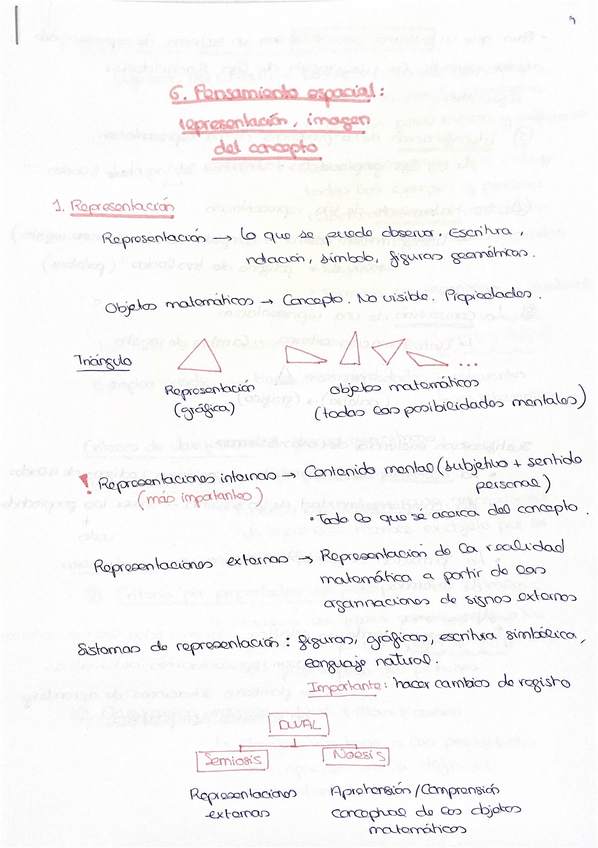 9
6. Pensamiento espacial:
representación, imagen
del concepto
1. Representación
Representación → lo que se puede observar. Escritura,
notación, símbolo, figuras geométricas.
Objetos matemáticos → Concepto. No visible. Propiedades.
Triángulo
Representación
(gráfica)
...
Objetos matemáticos
(todas las posibilidades mentales)
! Representaciones internas → Contenido mental (subjetivo + sentido
(más importantes)
personal)
• Todo lo que sé acerca del concepto.
Representaciones externas → Representación de la realidad
matemática a partir de las
organizaciones de signos externos
Sistemas de representación: figuras, gráficas, escritura simbólica,
lenguaje natural.
Importante: hacer cambios de registro
DUVAL
Semiosis
Noesis
Representaciones
externas
Aprehensión/Comprensión
conceptual de los objetos
matemáticos